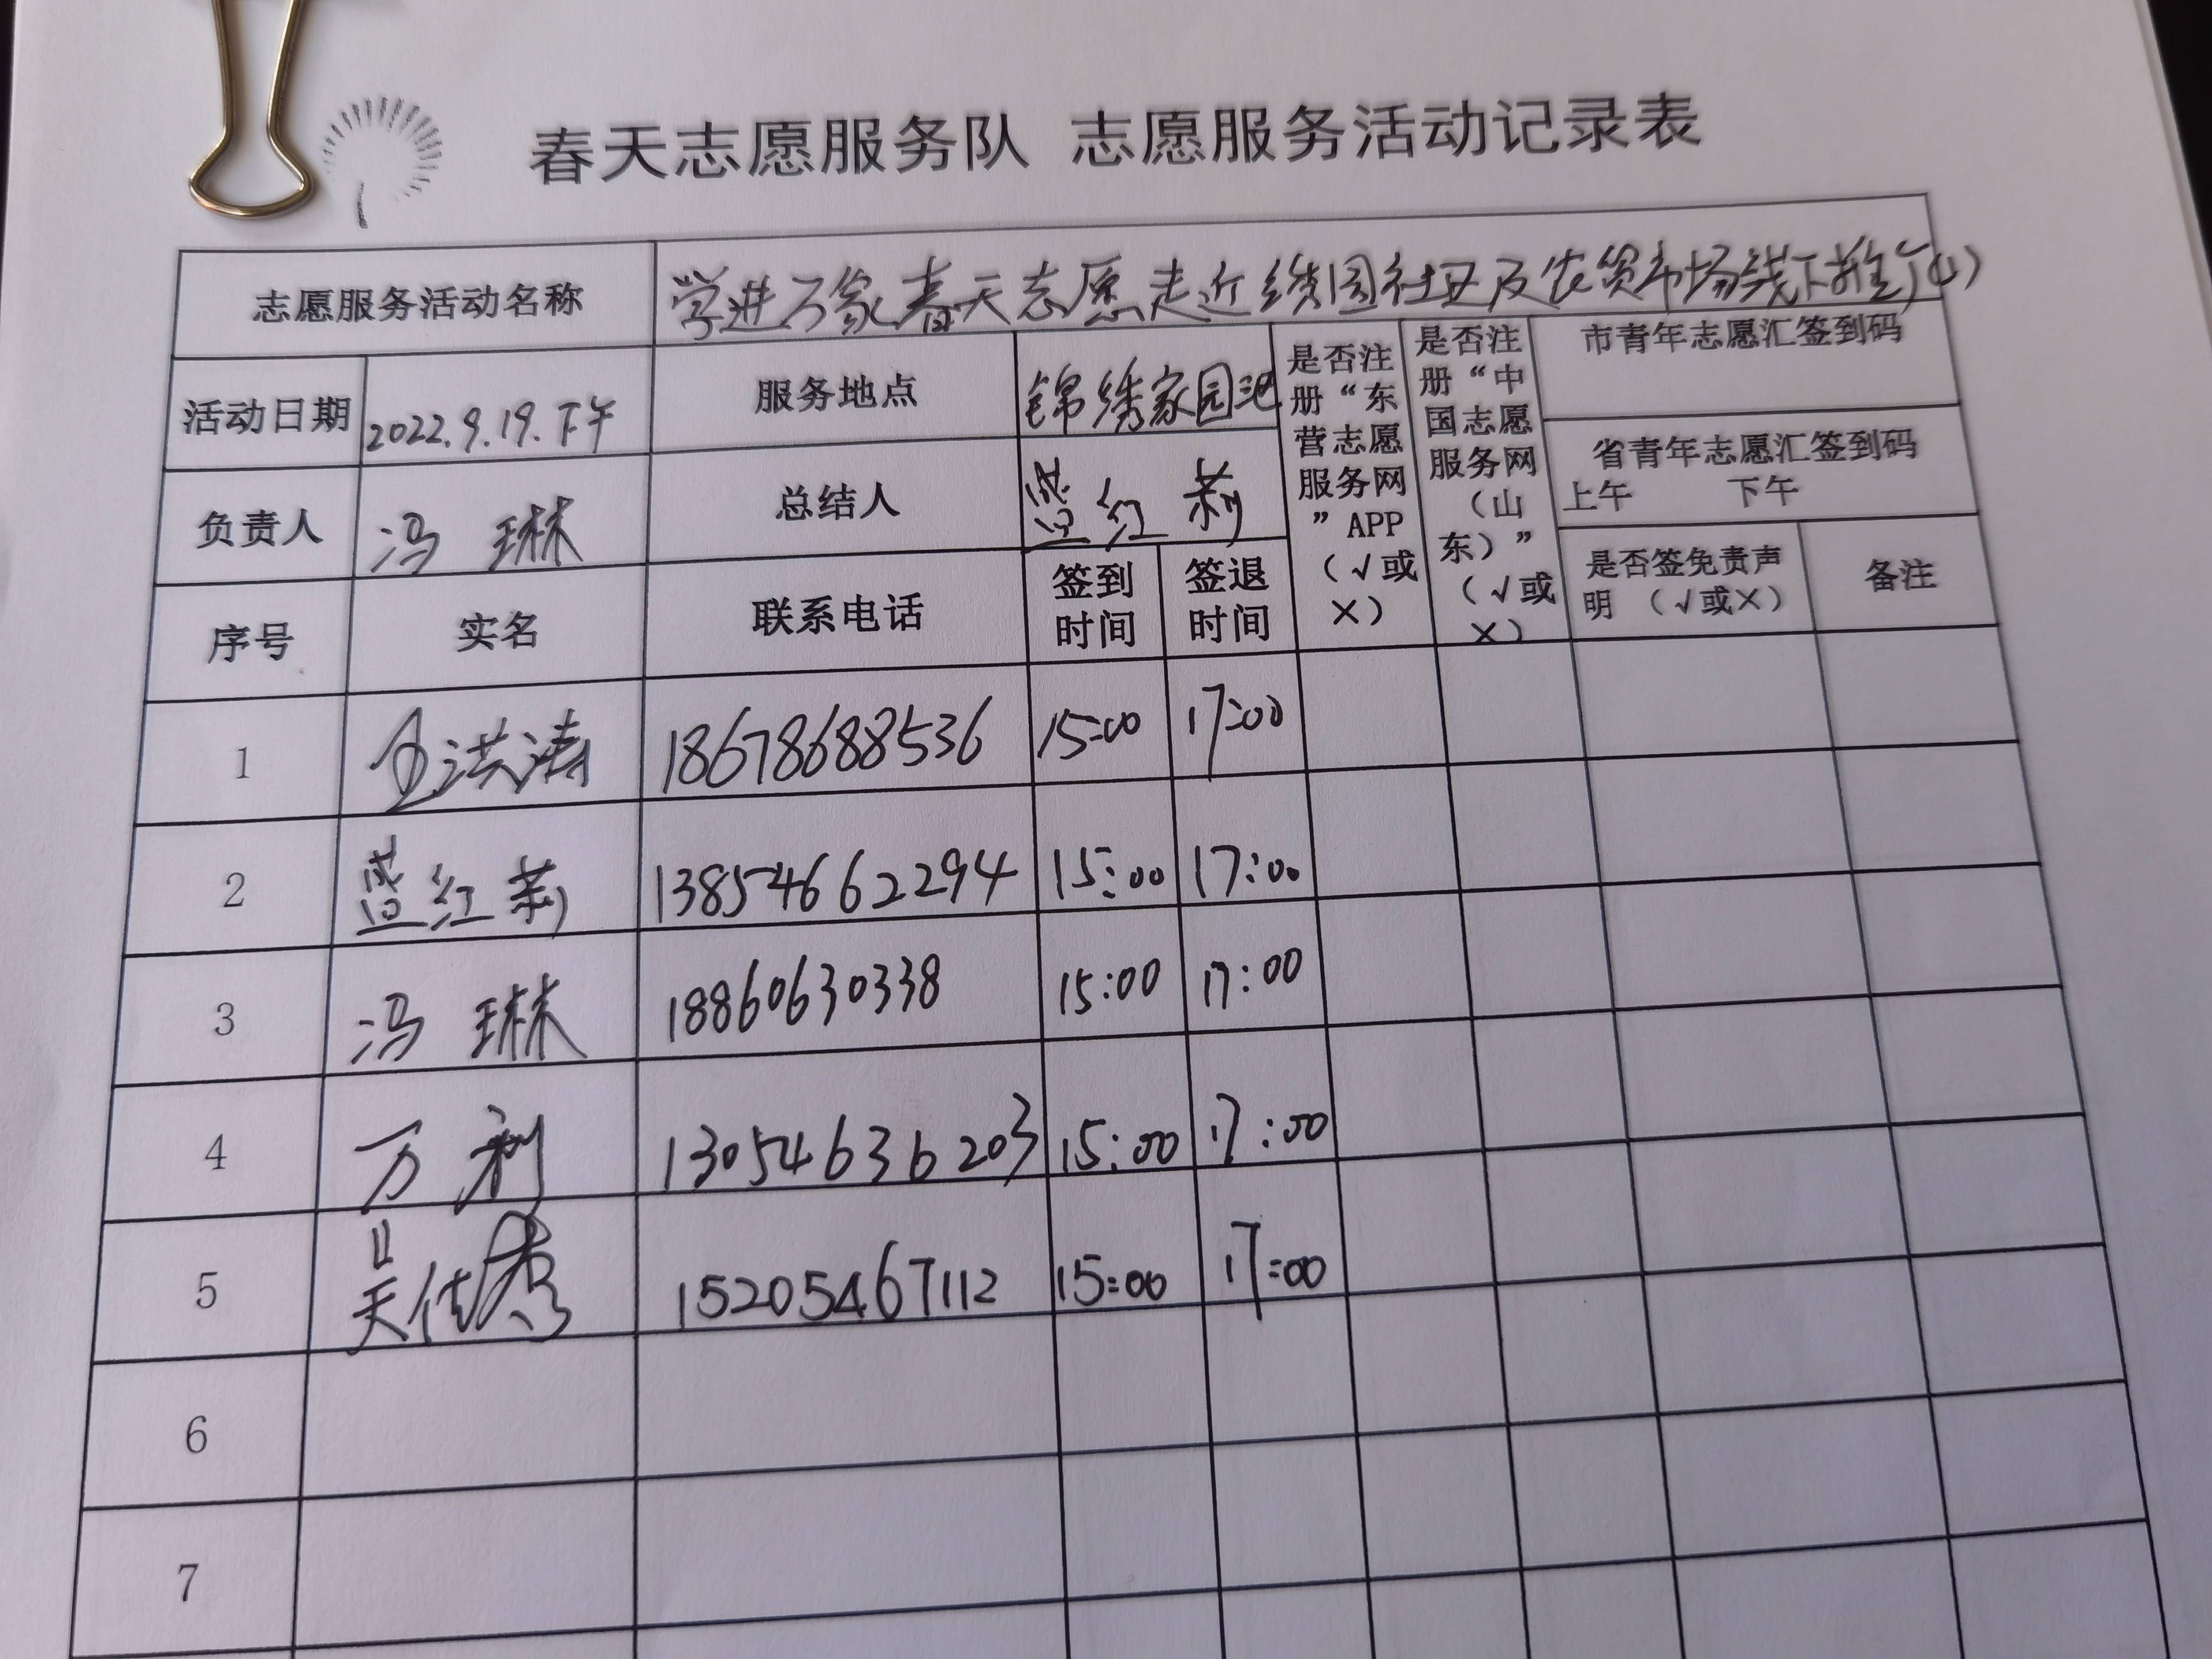 春天志愿服务队 志愿服务活动记录表
志愿服务活动名称 学进万家春天志愿走近绣园社区及农贸市场线下推广(4)
活动日期 2022.9.19.下午 服务地点 锦绣家园 是否注册“东营志愿服务网”APP（√或×） 是否注册“中国志愿服务网（山东）”（√或×） 市青年志愿汇签到码
省青年志愿汇签到码
上午 下午
负责人 冯琳 总结人 红莉
序号 实名 联系电话 签到时间 签退时间 是否签免责声明 （√或×） 备注
1 洪涛 18678688536 15:00 17:00
2 红莉 13854662294 15:00 17:00
3 冯琳 18860630338 15:00 17:00
4 万利 13054636203 15:00 17:00
5 吴传秀 15205467112 15:00 17:00
6
7